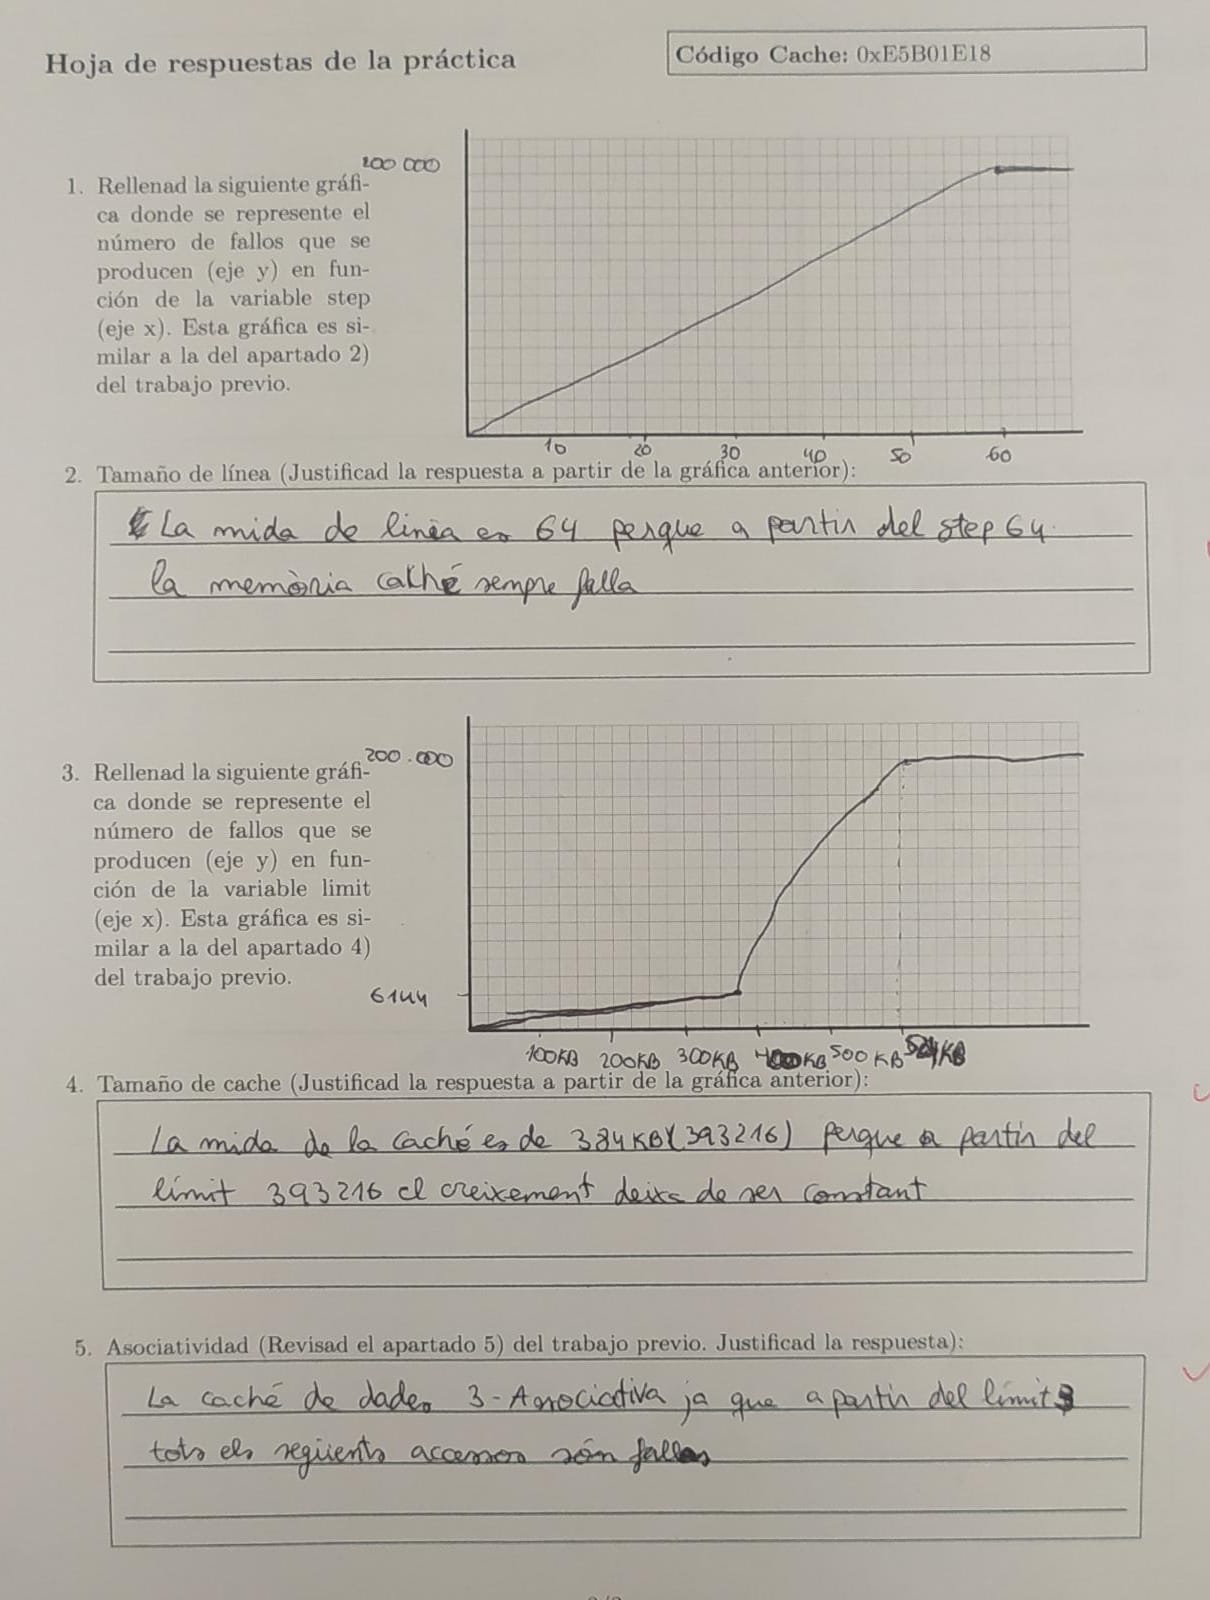 Hoja de respuestas de la práctica
Código Cache: 0xE5B01E18
1. Rellenad la siguiente gráfi-
ca donde se represente el
número de fallos que se
producen (eje y) en fun-
ción de la variable step
(eje x). Esta gráfica es si-
milar a la del apartado 2)
del trabajo previo.
200 000
10 20 30 40 50 60
2. Tamaño de línea (Justificad la respuesta a partir de la gráfica anterior):
La mida de linia es 64 perque a partir del step 64
la memòria caché sempre falla
3. Rellenad la siguiente gráfi-
ca donde se represente el
número de fallos que se
producen (eje y) en fun-
ción de la variable limit
(eje x). Esta gráfica es si-
milar a la del apartado 4)
del trabajo previo.
200.000
6144
100KB 200KB 300KB 400KB 500KB
4. Tamaño de cache (Justificad la respuesta a partir de la gráfica anterior):
La mida de la caché es de 384KB(393216) perque a partir del
límit 393216 el creixement deixa de ser constant
5. Asociatividad (Revisad el apartado 5) del trabajo previo. Justificad la respuesta):
La caché de dades 3-Associativa ja que a partir del limit 3
tots els següents accessos són fallos